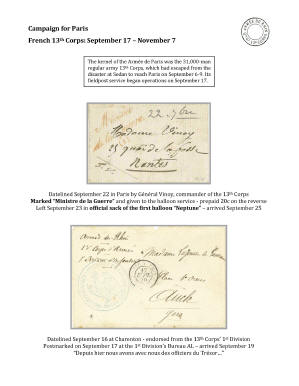 Campaign for Paris
French 13th Corps: September 17 – November 7
The kernel of the Armée de Paris was the 31,000-man
regular army 13th Corps, which had escaped from the
disaster at Sedan to reach Paris on September 6-9. Its
fieldpost service began operations on September 17.
22. 7bre
Madame Vinoy
25 quai de la fosse
Nantes
Datelined September 22 in Paris by Général Vinoy, commander of the 13th Corps
Marked "Ministre de la Guerre" and given to the balloon service - prepaid 20c on the reverse
Left September 23 in official sack of the first balloon "Neptune" – arrived September 25
Armée du Rhin
Madame
Auch
Gers
Datelined September 16 at Charenton - endorsed from the 13th Corps' 1st Division
Postmarked on September 17 at the 1st Division's Bureau AL – arrived September 19
"Depuis hier nous avons avec nous des officiers du Trésor…"